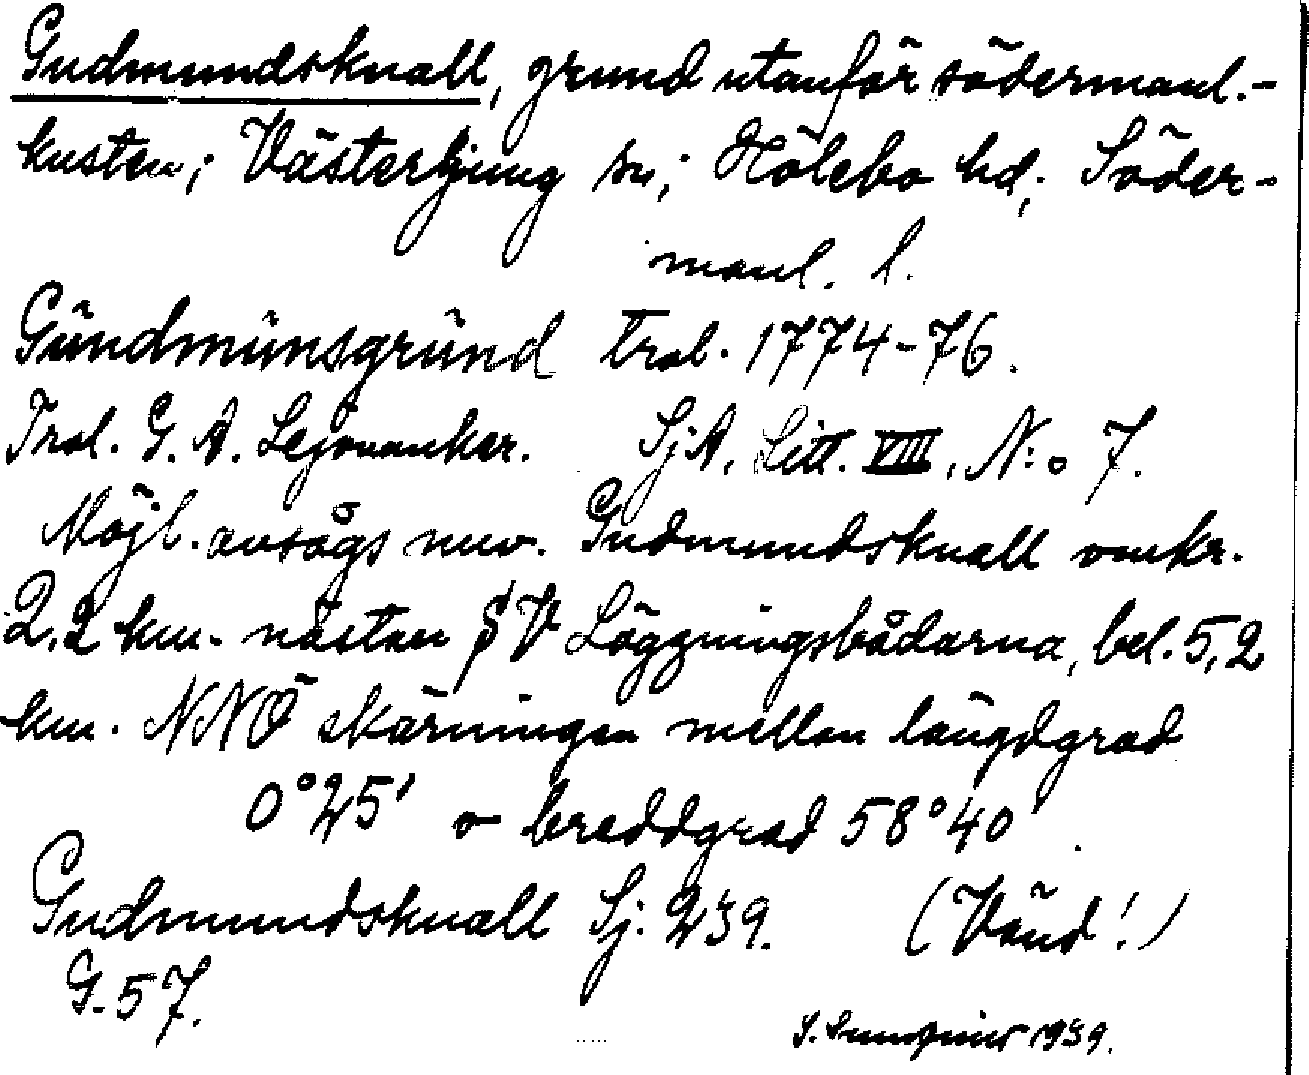 Gudmundsknall, grund utanför södermanl.-
kusten; Västerljung sn; Hölebo hd; Söder-
manl. l.
Gündmünsgründ trol. 1774-76.
Trol. G. A. Lejonanker. SjA, Litt. VIII, N:o 7.
Möjl. avsågs nuv. Gudmundsknall omkr.
2,2 km. nästan S V Löggningsbådarna, bel. 5,2
km. NNÖ skärningen mellan längdgrad
0°25' o breddgrad 58°40'.
Gudmundsknall Sj. 239. (Vänd!)
G. 57.
1939.